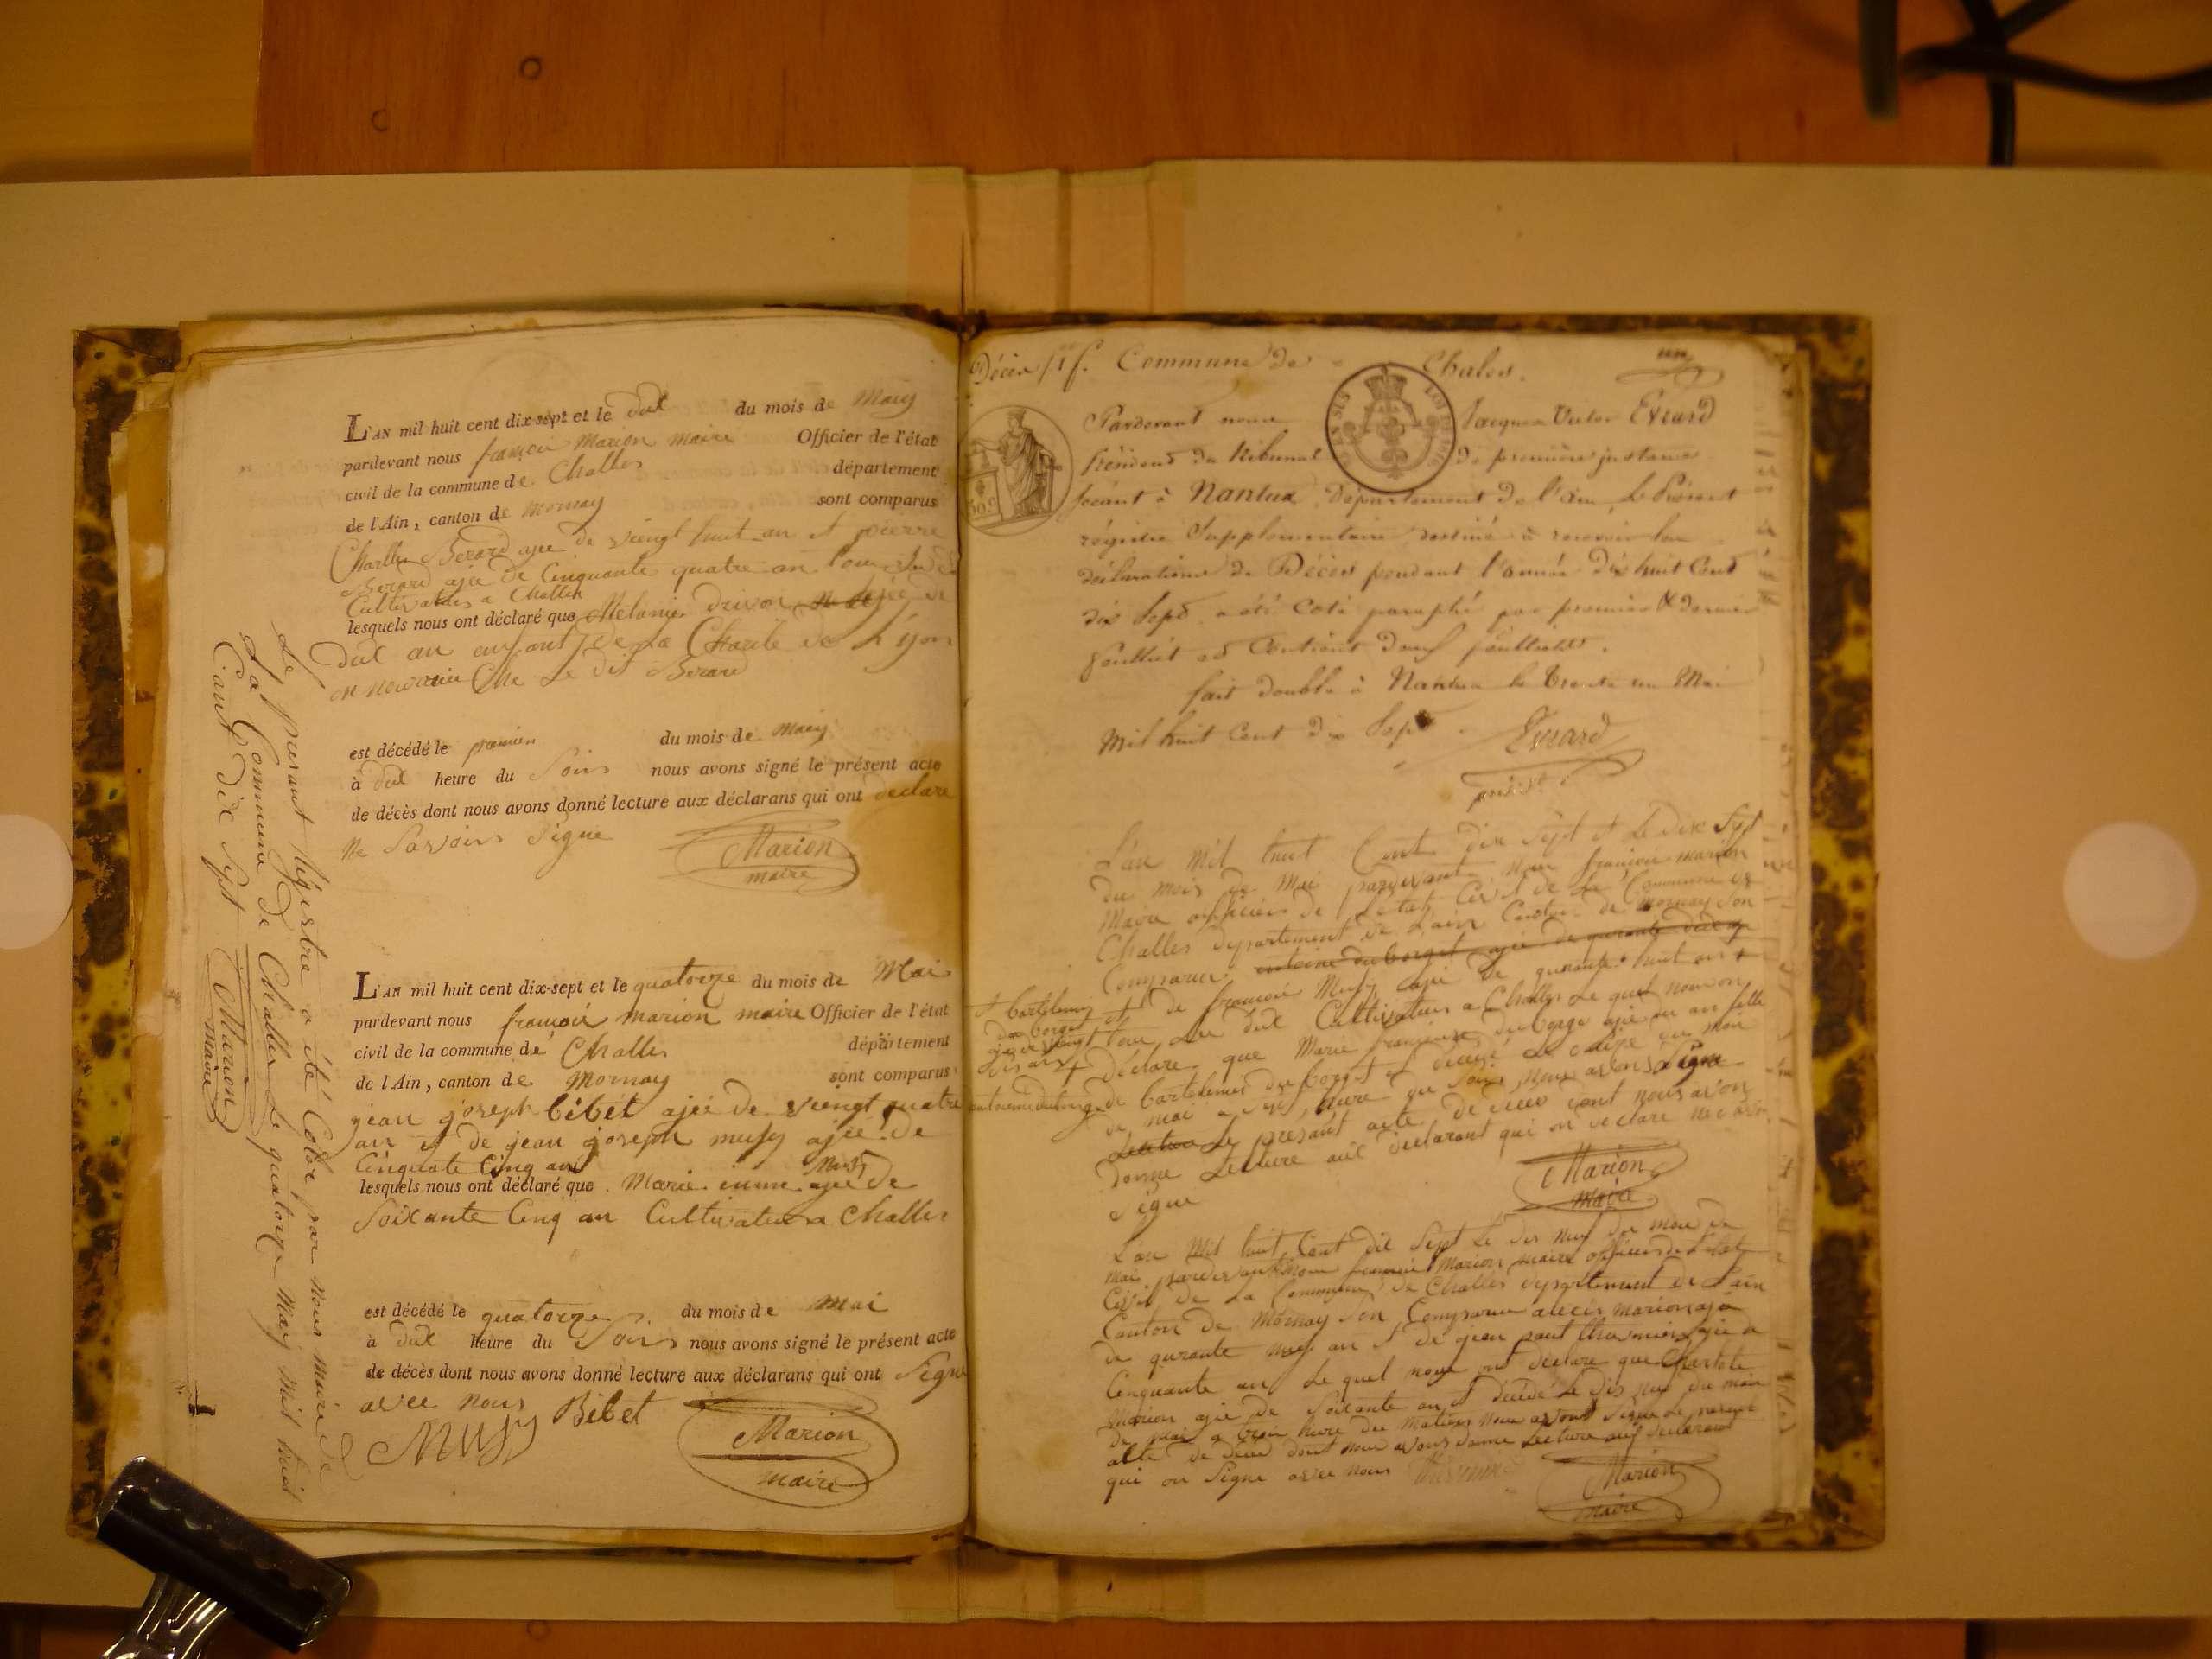 L'AN mil huit cent dix-sept et le dux du mois de May
pardevant nous françoi Marion maire Officier de l'état
civil de la commune de Challes département
de l'Ain, canton de Mornay sont comparus
Charles Berard ajee de viengt huit an et pierre
Berard ajee de Cinquante quatre an tous
Cultivateurs a Challes
lesquels nous ont déclaré que Melanie ajée de
dux an enfant de La Charité de Lyon
Che Le dit Berard
est décédé le premier du mois de May
à dux heure du Soirs nous avons signé le présent acte
de décès dont nous avons donné lecture aux déclarans qui ont declare
Ne Savoirs Signe
Marion
maire
L'AN mil huit cent dix-sept et le quatorze du mois de Mai
pardevant nous françoi marion maire Officier de l'état
civil de la commune de Challes département
de l'Ain, canton de Mornay sont comparus
jean joseph bibet ajée de viengt quatre
an et de jean joseph musy ajée de
Cinquate Cinq an
lesquels nous ont déclaré que Marie ajée de
Soixante Cinq an Cultivateur a Challes
est décédé le quatorze du mois de Mai
à dux heure du Soirs nous avons signé le présent acte
de décès dont nous avons donné lecture aux déclarans qui ont Signe
avec nous
Musy Bibet Marion
maire
Le presant Régistre a été Clotor par nous maire de
La Commune de Challes Le quatorze May mil huit
Cant dix sept Marion
maire
Décès 1er f. Commune de Chales.
Pardevant nous Jacques Victor Evrard
Président du tribunal de première instance
séant à Nantua, Département de l'Ain, le Présent
régistre Supplémentaire destiné à recevoir les
déclarations de Décès pendant l'année dix huit Cent
dix Sept a été Coté paraphé par premier & dernier
feuillet et Contient deux feuillets.
fait double à Nantua le trente un Mai
Mil huit Cent dix Sept. Evrard
présdt.
L'an Mil huit Cent dix Sept et Le dix Sept
du mois de Mai pardevant nous françoi marion
Maire officier de L'etat Civil de La Commune de
Challes département de L'ain Canton de mornay Son
Comparu antoine duborget ajée de quarante dux an
et de françoi Musy ajée de quarante huit an +
tous Les dux Cultivateurs a Challes Le quel nous on
déclare que Marie françoise duborge ajée un an fille
de bartelemi duborget et décédé Le onze du moi
de mai a heure du Soirs nous avons Signe
Le presant acte de déces dont nous avon
donne Lecture aux declarant qui on declare ne Savoir
Signe
Marion
maire
+ bartelemi
duborget
ajée de viengt
L'an Mil huit Cant dix Sept Le dix neuf du moi de
mai pardevant nous françoi Marion maire officier de L'etat
Civil de La Commune de Challes département de L'ain
Canton de Mornay son Comparu alecis Marion aja
de quarante neuf an et de jean
Cinquante an Le quel nous ont declare que Charlote
Marion ajée de Soixante an et décédé Le dix neuf du moi
de mai a trois heure du Matiens nous avons Signe Le present
acte de décé dont nous avons donne Lecture aux declarant
qui on Signe avec nous
Marion
maire